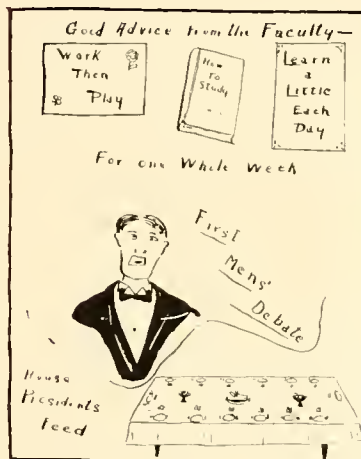 Good Advice from the Faculty—
Work
Then
Play
How
To
Study
Learn
a
Little
Each
Day
For one Whole Week
First
Mens'
Debate
House
Presidents
Feed